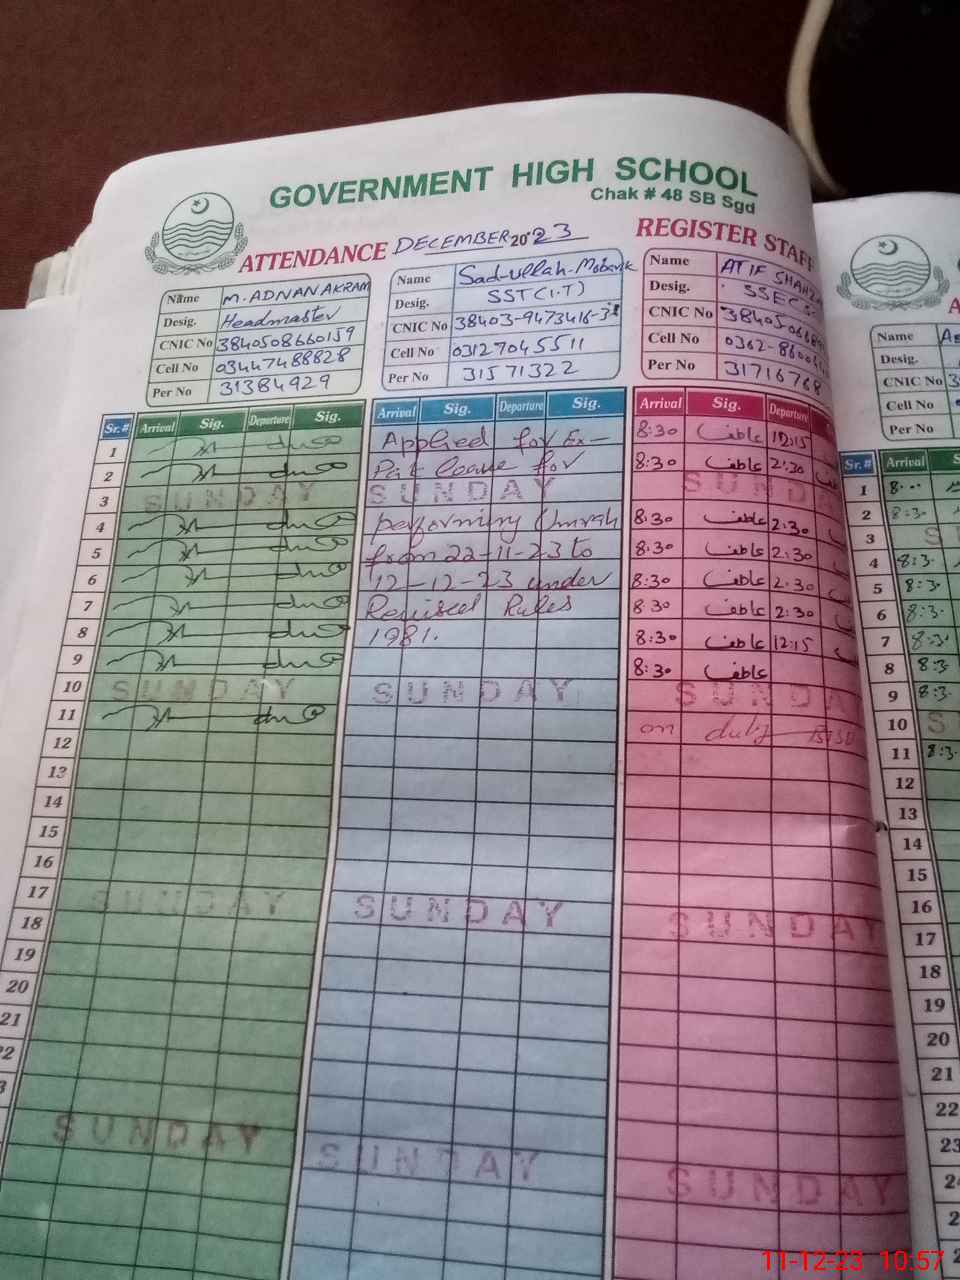 GOVERNMENT HIGH SCHOOL
Chak # 48 SB Sgd
ATTENDANCE DECEMBER 2023 REGISTER STAFF
Name M. ADNAN AKRAM
Desig. Headmaster
CNIC No 3840508660159
Cell No 03447488828
Per No 31384929
Name Sadullah-Mobarik
Desig. SST(I.T)
CNIC No 38403-9473416-3
Cell No 03127045511
Per No 31571322
Name ATIF
Desig. SSE
CNIC No
Cell No
Per No 31716768
Name
Desig.
CNIC No
Cell No
Per No
Sr.# Arrival Sig. Departure Sig.
1
2
3 SUNDAY
4
5
6
7
8
9
10 SUNDAY
11
12
13
14
15
16
17 SUNDAY
18
19
20
21
SUNDAY
Arrival Sig. Departure Sig.
Applied for Ex-
Pak leave for
SUNDAY
performing Umrah
from 22-11-23 to
12-12-23 under
Rules
1981.
SUNDAY
SUNDAY
SUNDAY
Arrival Sig. Departure
8:30 عاطف 12:15
8:30 عاطف 2:30
SUNDAY
8:30 عاطف 2:30
8:30 عاطف 2:30
8:30 عاطف 2:30
8:30 عاطف 2:30
8:30 عاطف 12:15
8:30 عاطف
SUNDAY
on duty
SUNDAY
SUNDAY
Sr.# Arrival
1
2 8:30
3
4 8:3
5 8:3
6 8:3
7 8:3
8 8:3
9 8:3
10
11 8:3
12
13
14
15
16
17
18
19
20
21
22
23
11-12-23 10:57